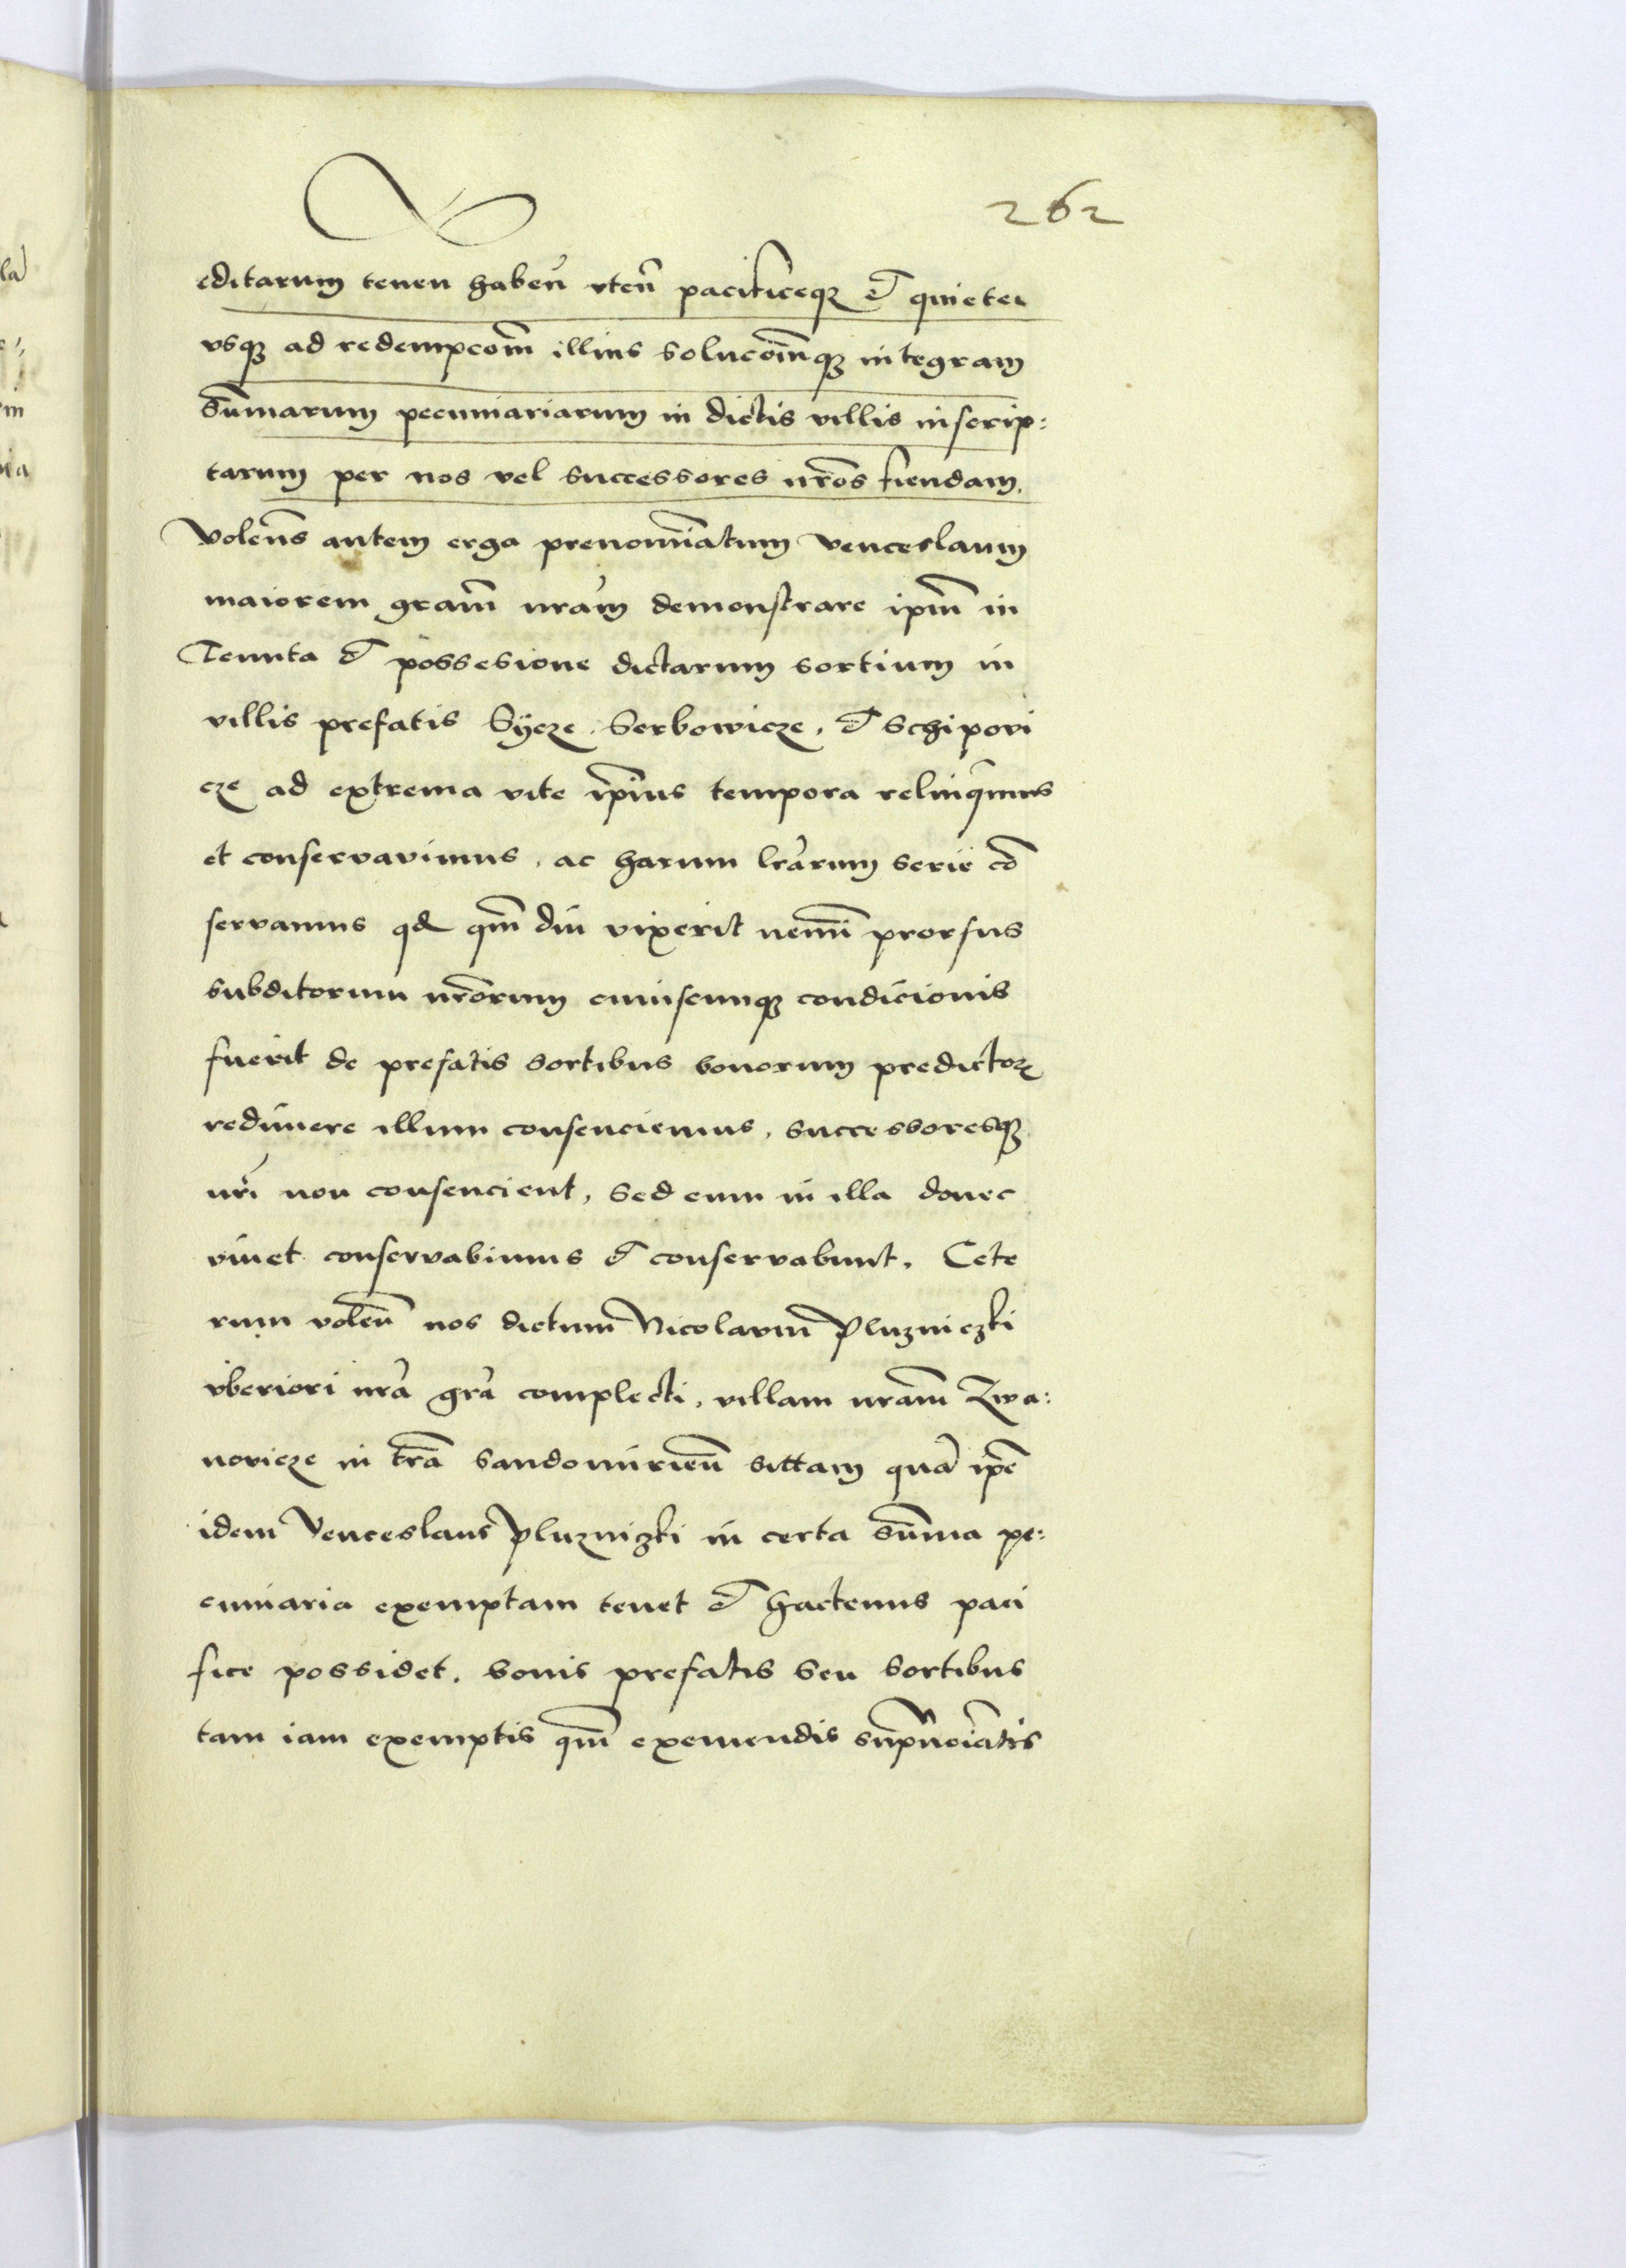 262
editarum tenen haben̄ vten̄ pacificeqȝ et quiete
vsqȝ ad redempcom̄ illius solucoīnqȝ integram
Sūmarum pecuniariarum in dictis villis inscrip:
tarum per nos vel successores nr̄os fiendam.
Volen̄s autem erga prenomīatum venceslaum
maiorem gram̄ nrām demonstrare ipm̄ in
Tenuta et possesione dictarum sortium in
villis prefatis Sÿcze. Serbowicze. et Schipovi
cze ad extrema vite ip̄ius tempora relinq̄muns
et conservavimus. ac harum lr̄arum serie cō
servamus qd qm̄ diu vixerit nemī prorsus
subditorum nr̄orum cuiuscunqȝ condicionis
fuerit de prefatis sortibus bonorum predictorꝫ
redimere illum consenciemus, successoresqȝ
nr̄i non consencient, sed eum in illa donec
vivet conservabimus et conservabunt. Cete
rum volen̄ nos dictum Nicolaum Pluzniczki
vberiori nr̄a gr̄a complecti, villam nram̄ Zwa:
novicze in tr̄a Sandomirien̄ sittam quā ip̄e
idem Venceslaus Pluznizki in certa sūma pe:
cuniaria exemptam tenet et hactenus paci
fice possidet. bonis prefatis seu sortibus
tam iam exemptis qm̄ exemendis